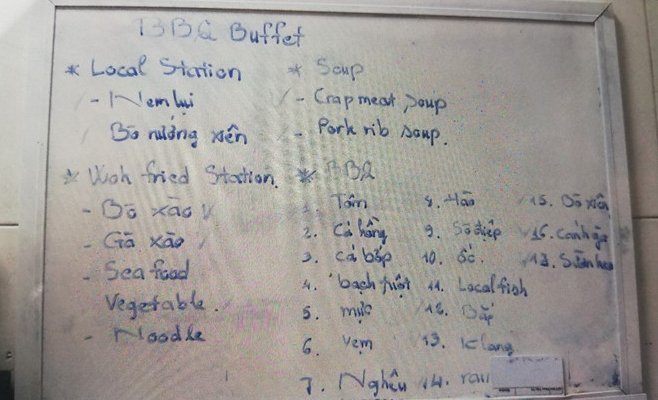 BBQ Buffet
* Local Station
- Nem lụi
Bò nướng xiên
* Woh fried Station.
- Bò xào
- Gà xào
- Sea food
Vegetable.
- Noodle
* Soup
- Crapmeat soup
- Pork rib soup.
* BBQ
1. Tôm
2. Cá hồng
3. cá bớp
4. bạch tuột
5. mực
6. Vẹm
7. Nghêu
8. Hào
9. Sò điệp
10. ốc.
11. Local fish
12. Bắp
13. K lang
14. rau
15. Bò xiên
16. cánh gà
17. Sườn heo